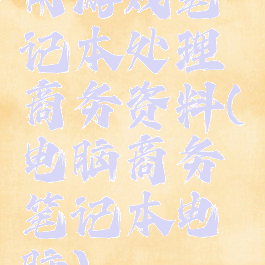 用游戏笔
记本处理
商务资料(
电脑商务
笔记本电
脑)